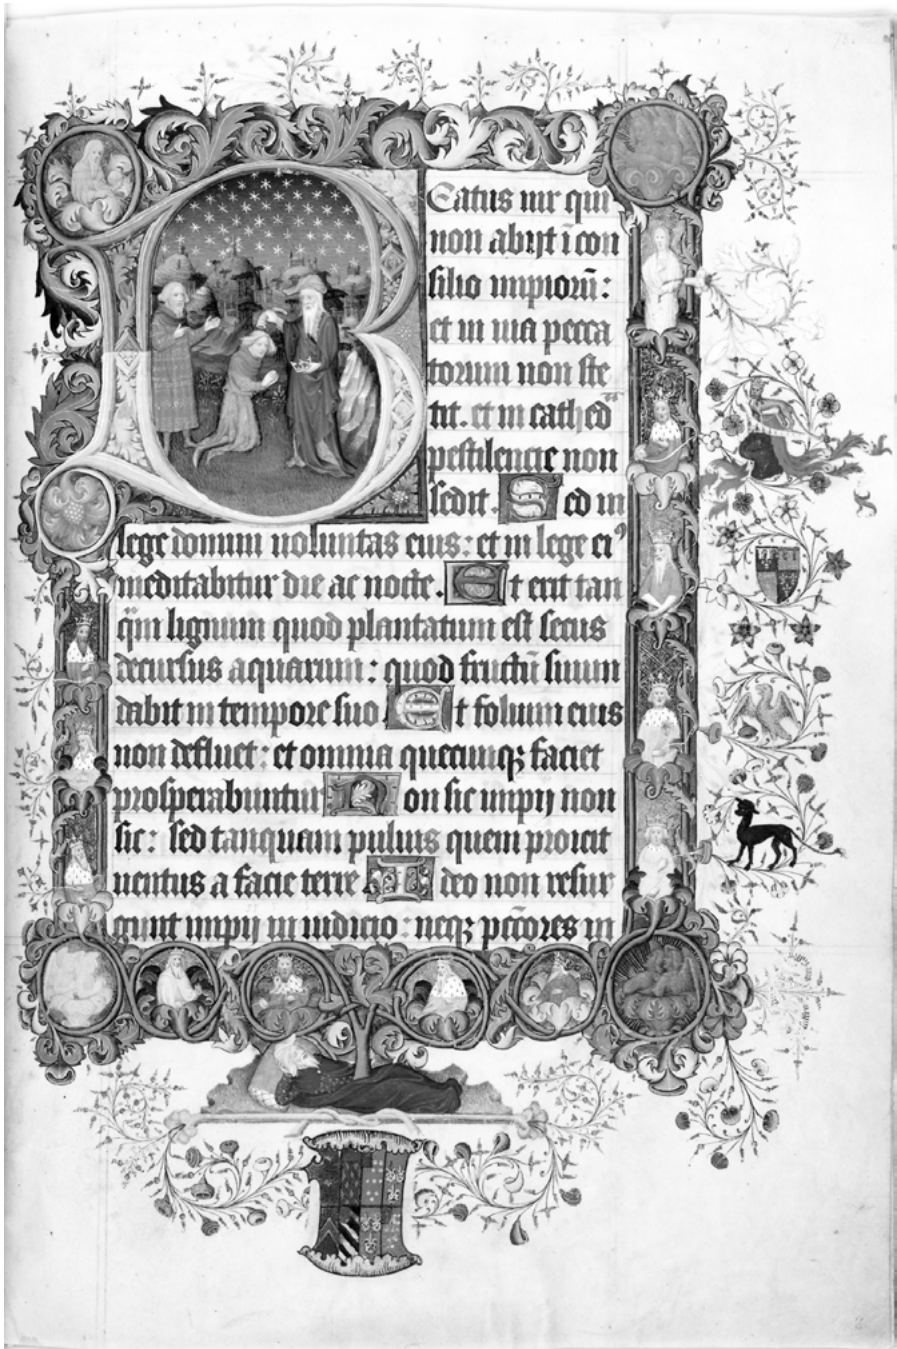 Beatus uir qui
non abijt i con
silio impioru̅:
et in uia pecca
torum non ste
tit. et in cathed̅
pestilencie non
sedit. Sed in
lege domini uoluntas eius: et in lege eiꝰ
meditabitur die ac nocte. Et erit tan
q̅m lignum quod plantatum est secus
decursus aquarum: quod fructu̅ suum
dabit in tempore suo Et folium eius
non defluet: et omnia quecumqꝫ faciet
prosperabuntur Non sic impij non
sic: sed tanquam puluis quem proicit
uentus a facie terre Ideo non resur
gunt impij in iudicio: neqꝫ pc̅ores in